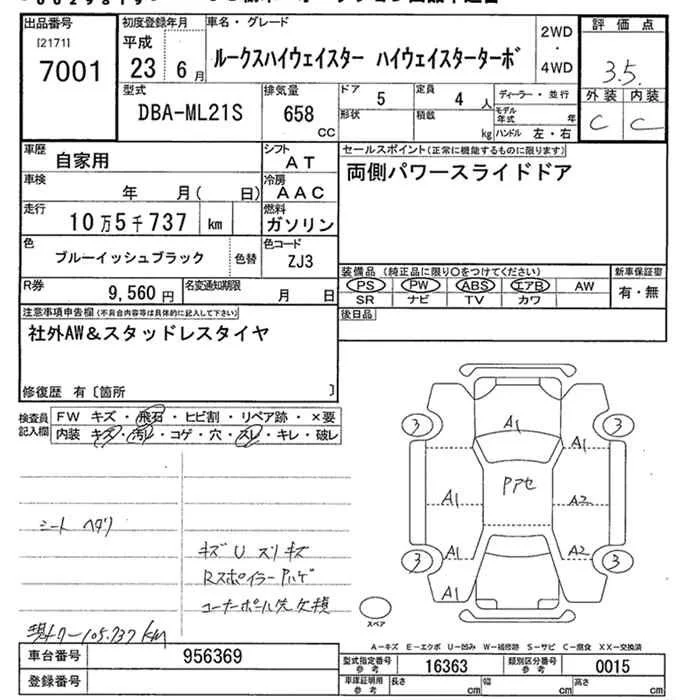 出品番号 初度登録年月 車名・グレード 評価点
[2171] 平成 2WD
7001 23 6月 ルークスハイウェイスター ハイウェイスターターボ ・ 3.5.
4WD
型式 排気量 ドア 5 定員 4 人 ディーラー・並行 外装 内装
DBA-ML21S 658 cc 形状 積載 kg モデル年式 年 C C
ハンドル 左・右
車歴 自家用 シフト AT セールスポイント(正常に機能するものに限ります)
車検 年 月( 日) 冷房 AAC 両側パワースライドドア
走行 10万5千737 km 燃料 ガソリン
色 ブルーイッシュブラック 色替 色コード ZJ3
装備品 (純正品に限り○をつけてください) 新車保証書
R券 9,560円 名変通知期限 月 日 PS PW ABS エアB AW 有・無
SR ナビ TV カワ
注意事項申告欄(不具合内容等は具体的に記入して下さい) 後日品
社外AW&スタッドレスタイヤ
修復歴 有〔箇所 〕
検査員 FW キズ・飛石・ヒビ割・リペア跡・×要
記入欄 内装 キズ・汚レ・コゲ・穴・スレ・キレ・破レ
3 A1 3
A1
A1 Pアセ A2
3 A1 A2 3
A1
シート ヘタリ
キズ U スリキズ
Rスポイラー Pハゲ
コーナーポール先欠損
スペア
現メーター105.737km
A－キズ E－エクボ U－凹み W－補修跡 S－サビ C－腐食 XX－交換済
車台番号 956369 型式指定番号 参考 16363 類別区分番号 参考 0015
登録番号 車庫証明用 参考 長さ cm 幅 cm 高さ cm